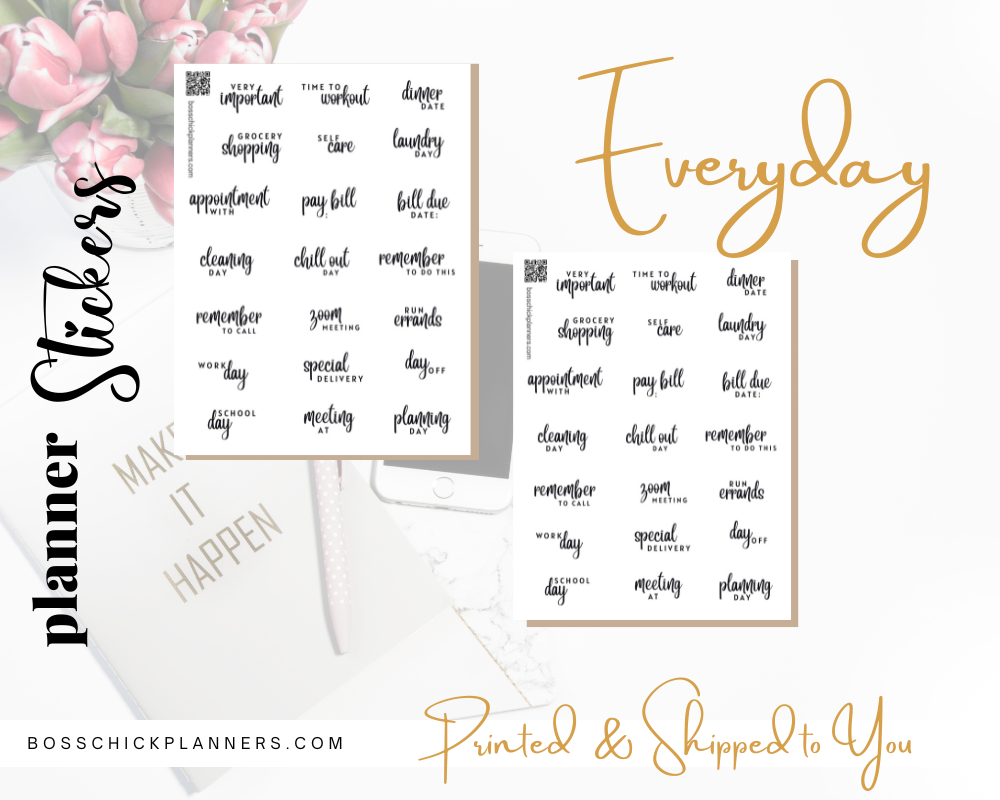 Everyday
planner Stickers
bosschickplanners.com
VERY important
TIME TO workout
dinner DATE
GROCERY shopping
SELF care
laundry DAY
appointment WITH
pay bill :
bill due DATE:
cleaning DAY
chill out DAY
remember TO DO THIS
remember TO CALL
zoom MEETING
RUN errands
WORK day
special DELIVERY
day OFF
SCHOOL day
meeting AT
planning DAY
bosschickplanners.com
VERY important
TIME TO workout
dinner DATE
GROCERY shopping
SELF care
laundry DAY
appointment WITH
pay bill :
bill due DATE:
cleaning DAY
chill out DAY
remember TO DO THIS
remember TO CALL
zoom MEETING
RUN errands
WORK day
special DELIVERY
day OFF
SCHOOL day
meeting AT
planning DAY
MAKE
IT
HAPPEN
BOSSCHICKPLANNERS.COM
Printed & Shipped to You